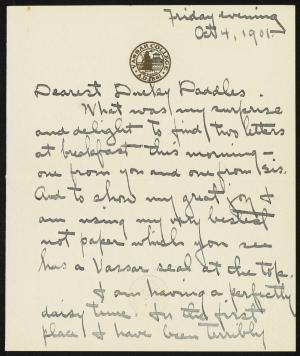 Friday evening
Oct 4, 1901.
VASSAR COLLEGE
Dearest Ducky Daddles.
What was my surprise
and delight to find two letters
at breakfast this morning -
one from you and one from Sis.
And to show my great joy I
am using my very bestest
note paper which you see
has a Vassar seal at the top.
I am having a perfectly
daisy time. In the first
place, I have been terribly